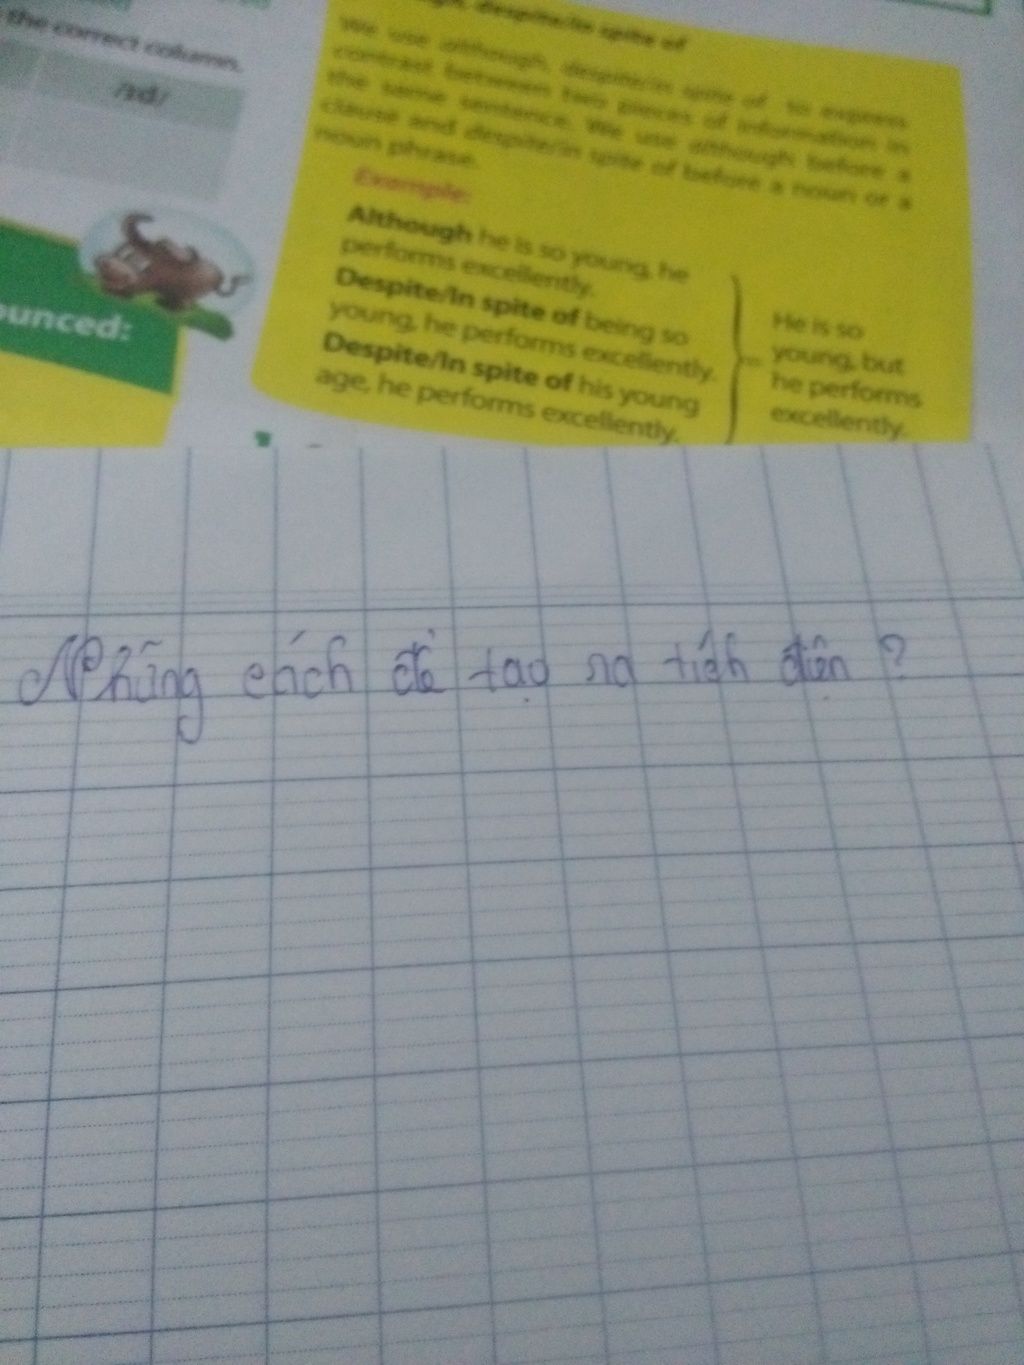 the correct column.
/ɪd/
ounced:
despite/in spite of
We use although, despite/in spite of to express
contrast between two pieces of information in
the same sentence. We use although before a
clause and despite/in spite of before a noun or a
noun phrase.
Example:
Although he is so young, he
performs excellently.
Despite/In spite of being so
young, he performs excellently.
Despite/In spite of his young
age, he performs excellently.
He is so
young, but
he performs
excellently.
Những cách để tạo ra tích điện ?